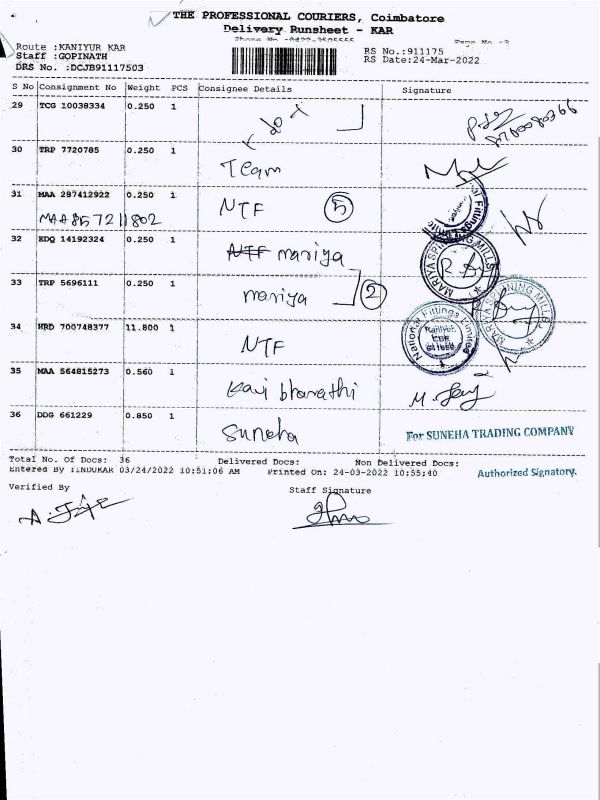 THE PROFESSIONAL COURIERS, Coimbatore
Delivery Runsheet - KAR
Route :KANIYUR KAR
Staff :GOPINATH
DRS No. :DCJB91117503
RS No.:911175
RS Date:24-Mar-2022
S No Consignment No Weight PCS Consignee Details Signature
29 TCG 10038334 0.250 1
30 TRP 7720785 0.250 1 Team
31 MAA 287412922 0.250 1 NTF 5
MAA857211802
32 EDQ 14192324 0.250 1 NTF mariya
MARIYA SPINNING MILLS
33 TRP 5696111 0.250 1 mariya 2
MARIYA SPINNING MILLS
34 HRD 700748377 11.800 1 NTF
National Fittings Limited
Kaniyur
CBE
641659
35 MAA 564815273 0.560 1 Kavi bharathi
36 DDG 661229 0.850 1 Suneha
For SUNEHA TRADING COMPANY
Total No. Of Docs: 36 Delivered Docs: Non Delivered Docs:
Entered By :INDUKAR 03/24/2022 10:51:06 AM Printed On: 24-03-2022 10:55:40
Authorized Signatory.
Verified By
Staff Signature